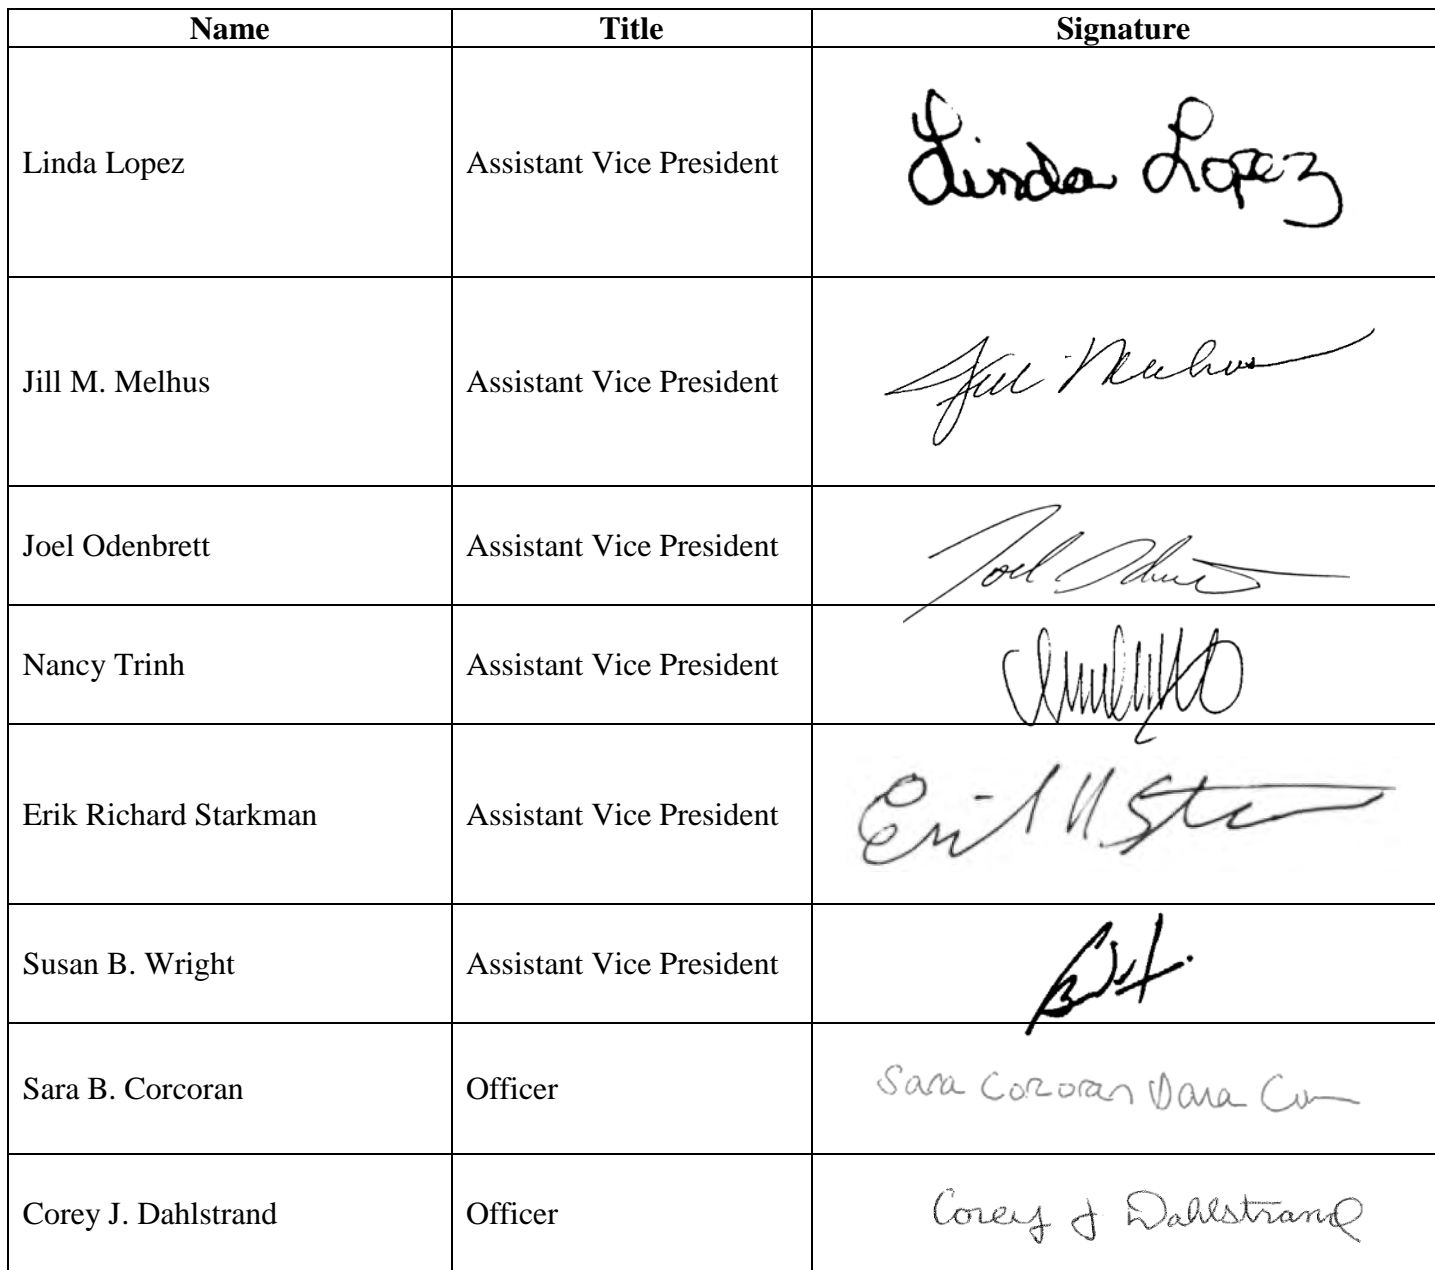 Name Title Signature
Linda Lopez Assistant Vice President Linda Lopez
Jill M. Melhus Assistant Vice President Jill Melhus
Joel Odenbrett Assistant Vice President Joel
Nancy Trinh Assistant Vice President
Erik Richard Starkman Assistant Vice President
Susan B. Wright Assistant Vice President
Sara B. Corcoran Officer Sara Corcoran Sara
Corey J. Dahlstrand Officer Corey J Dahlstrand